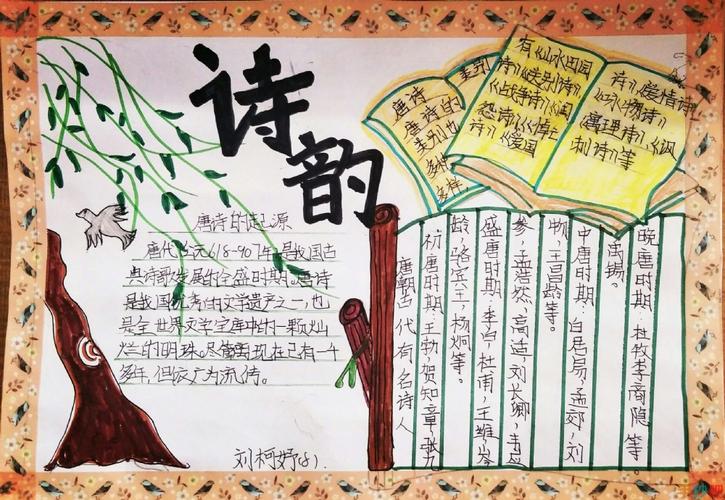 诗韵
唐诗的起源
唐代公元618-907年是我国古
典诗歌发展的全盛时期。唐诗
是我国优秀的文学遗产之一,也
是全世界文学宝库中的一颗灿
烂的明珠。尽管离现在已有一千
多年,但依广为流传。
刘柯妤
唐诗
唐诗的
类别也
多样
类别
有《山水田园
诗》《送别诗》
《战争诗》《闺
怨诗》《悼亡
诗》《爱国
诗》《爱情诗》
《咏物诗》
《寓理诗》《讽
刺诗》等
晚唐时期:杜牧李商隐等。
禹锡。
中唐时期:白居易,孟郊,刘
物,王昌龄等。
参,孟浩然,高适,刘长卿,韦应
盛唐时期:李白,杜甫,王维,岑
龄,骆宾王,杨炯等。
初唐时期:王勃,贺知章,张九
唐朝古代有名诗人